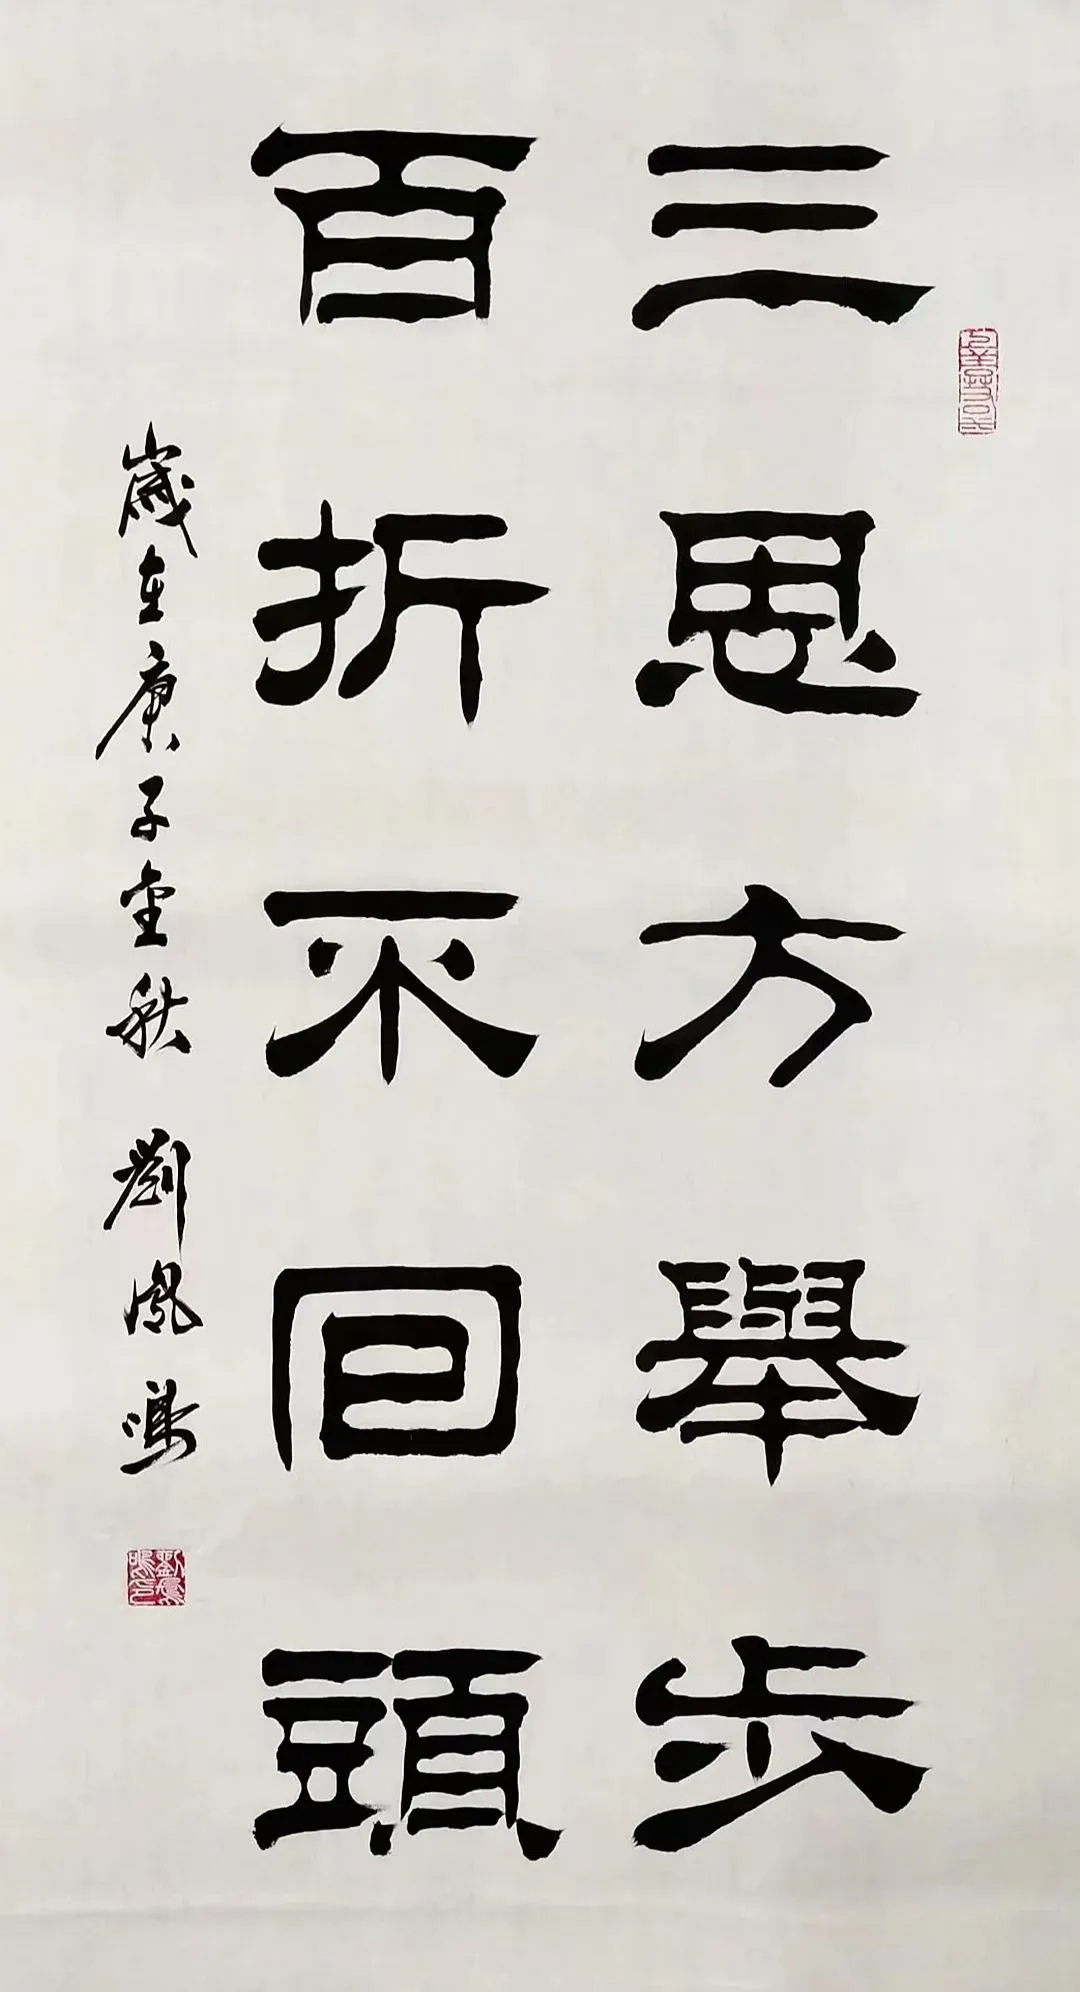 三思方舉步
百折不回頭
歲在庚子金秋 劉鳳鳴